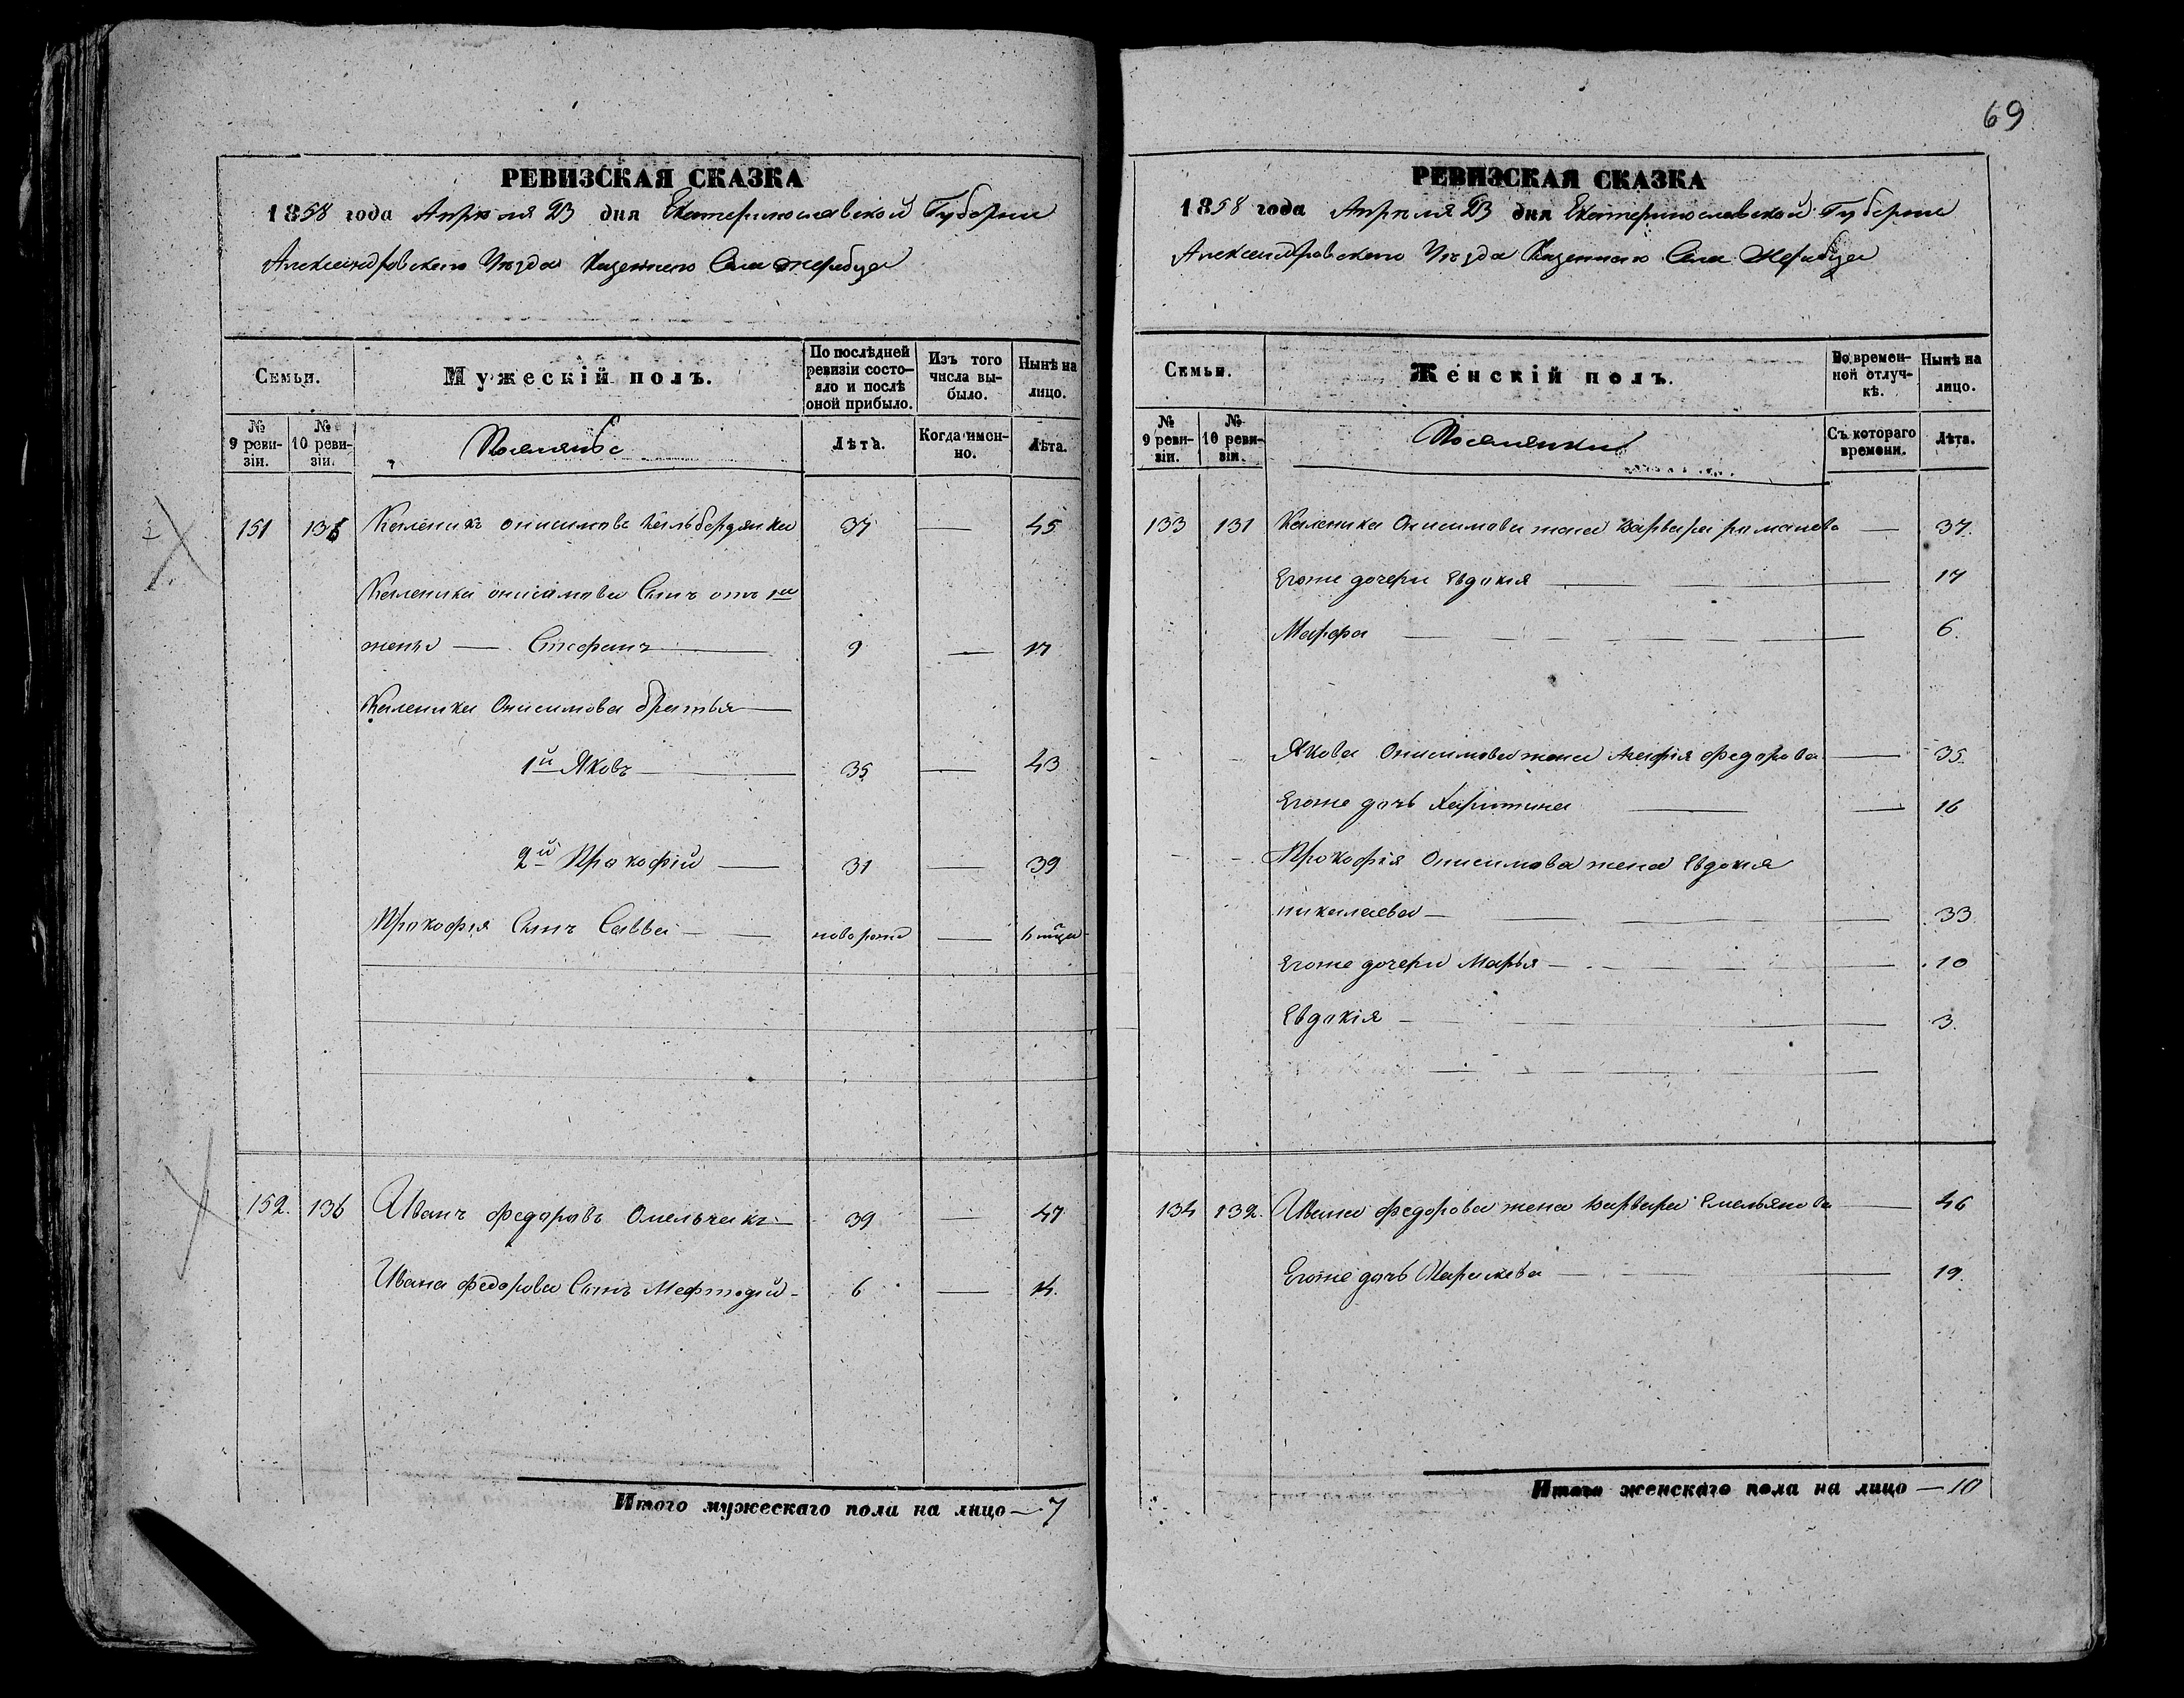 РЕВИЗСКАЯ СКАЗКА
1858 года Апрѣля 23 дня Екатеринославской Губерніи
Александровскаго Уѣзда Казеннаго Села Жеребца
Семьи.
Мужескій полъ.
По послѣдней ревизіи состояло и послѣ оной прибыло.
Изъ того числа выбыло.
Нынѣ на лицо.
№ 9 ревизіи.
№ 10 ревизіи.
Лѣта.
Когда именно.
Лѣта.
151 Каленикъ Онисимовъ 37 — 45
Каленика Онисимова Сынъ отъ 1й
жены — Стефанъ — 9 — 17
Каленика Онисимова братья —
1й Яковъ — 35 — 43
2й Прокофій — 31 — 39
Прокофія Сынъ Савва — — новорож —
152. 136 Иванъ Федоровъ Омельченко — 39 — 47
Ивана Федорова Сынъ Мефтодій - 6 — 14.
Итого мужескаго пола на лицо — 7
69
РЕВИЗСКАЯ СКАЗКА
1858 года Апрѣля 23 дня Екатеринославской Губерніи
Александровскаго Уѣзда Казеннаго Села Жеребца
Семьи.
Женскій полъ.
Во временной отлучкѣ.
Нынѣ на лицо.
№ 9 ревизіи.
№ 10 ревизіи.
Поселянки
Съ котораго времени.
Лѣта.
133 131 Каленика Онисимова жена Варвара Романова — 37.
Егоже дочери Евдокія — 17
Марфа — 6.
Якова Онисимова жена Агафія Федорова — 35.
Егоже дочь Харитина — — 16
Прокофія Онисимова жена Евдокія
Николаева — — 33
Егоже дочери Марья — 10
Евдокія — 3.
134 132. Ивана Федорова жена Варвара Емельянова — 46
Егоже дочь Параскева — 19.
Итого женскаго пола на лицо — 10